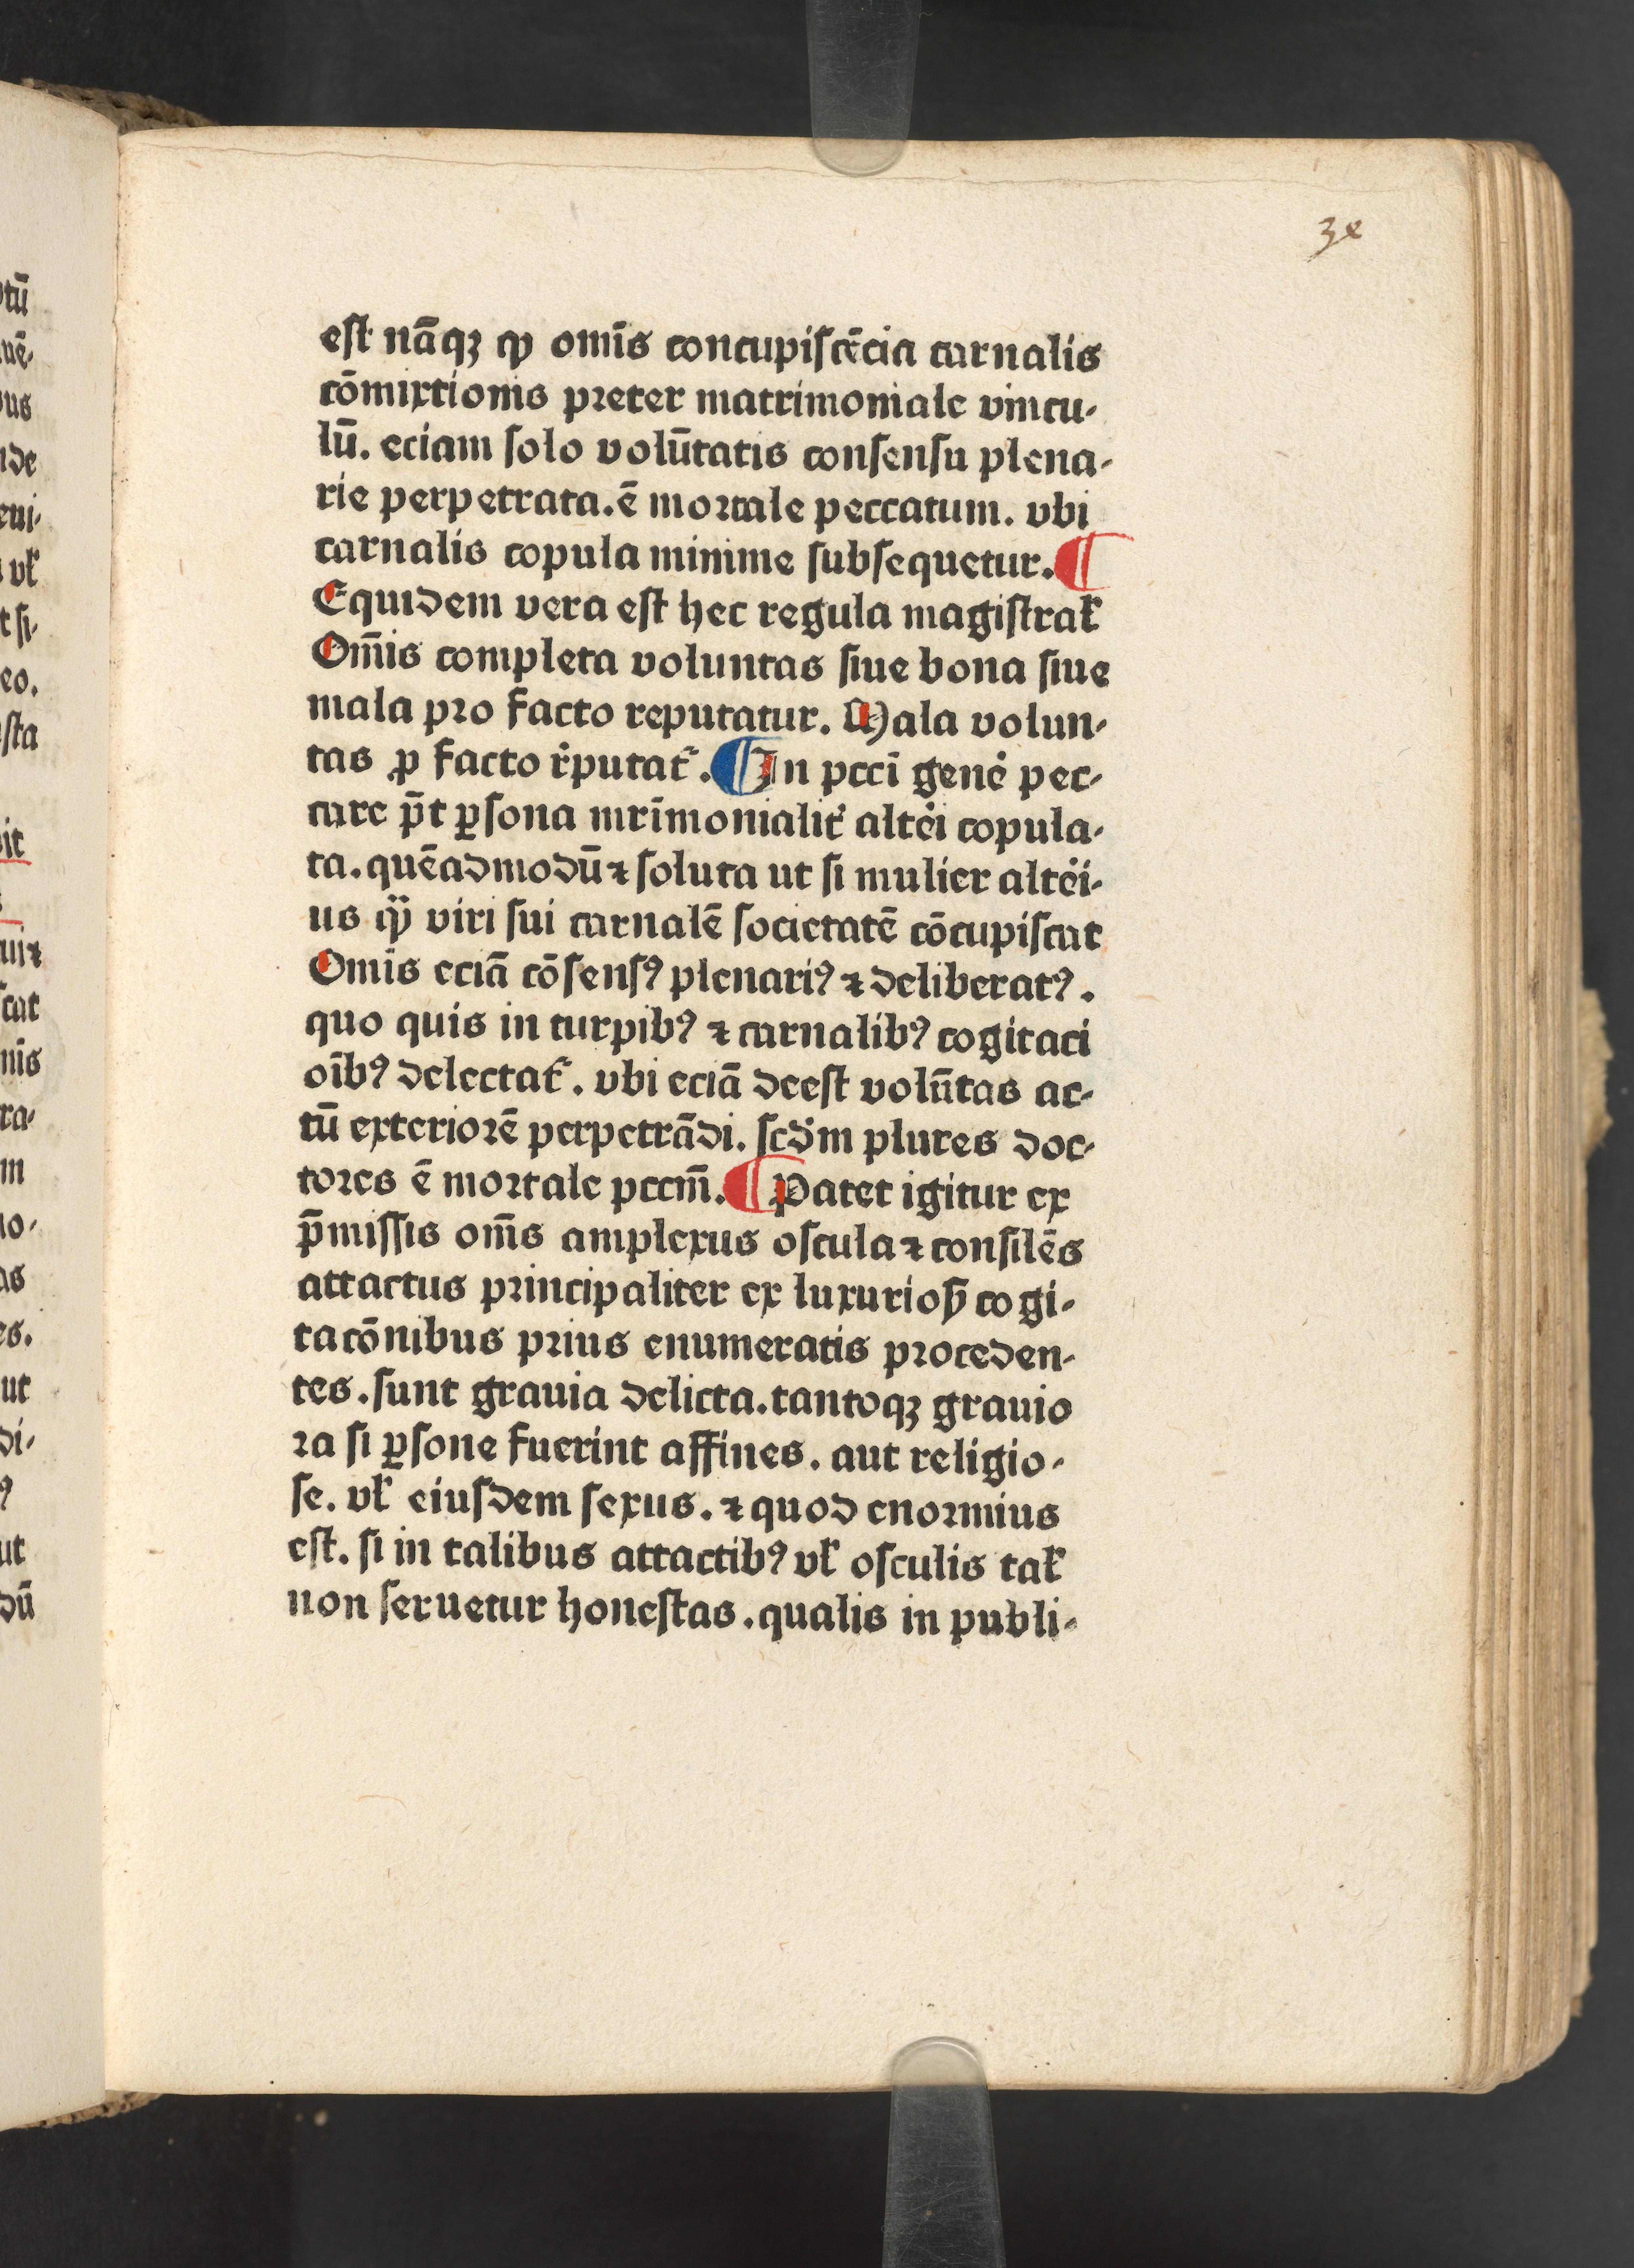 est nāqꝫ ꝙ om̄is concupiscēcia carnalis
cōmixtionis preter matrimoniale vincu-
lū. eciam solo volūtatis consensu plena-
rie perpetrata. ē mortale peccatum. vbi
carnalis copula minime subsequetur. ¶
Equidem vera est hec regula magistral̄
Om̄is completa voluntas siue bona siue
mala pro facto reputatur. Mala volun-
tas ꝓ facto r̄putat᷑. ¶ In pcci̅ gene᷑ pec-
care p̄t ꝑsona mr̄imonialit᷑ alte᷑i copula-
ta. quēadmodū ⁊ soluta ut si mulier alte᷑i-
us qꝫ̈ viri sui carnalē societatē cōcupiscat
Om̄is eciā cōsensꝰ plenariꝰ ⁊ deliberatꝰ.
quo quis in turpibꝰ ⁊ carnalibꝰ cogitaci
oībꝰ delectat᷑. vbi eciā deest volūtas ac-
tū exteriorē perpetrādi. scd̄m plures doc-
tores ē mortale pccm̄. ¶ Patet igitur ex
p̄missis om̄s amplexus oscula ⁊ consilēs
attactus principaliter ex luxurioꝭ cogi-
tacōnibus prius enumeratis proceden-
tes. sunt grauia delicta. tantoqꝫ grauio
ra si ꝑsone fuerint affines. aut religio-
se. vl̄ eiusdem sexus. ⁊ quod enormius
est. si in talibus attactibꝰ vl̄ osculis tal̄
non seruetur honestas. qualis in publi-